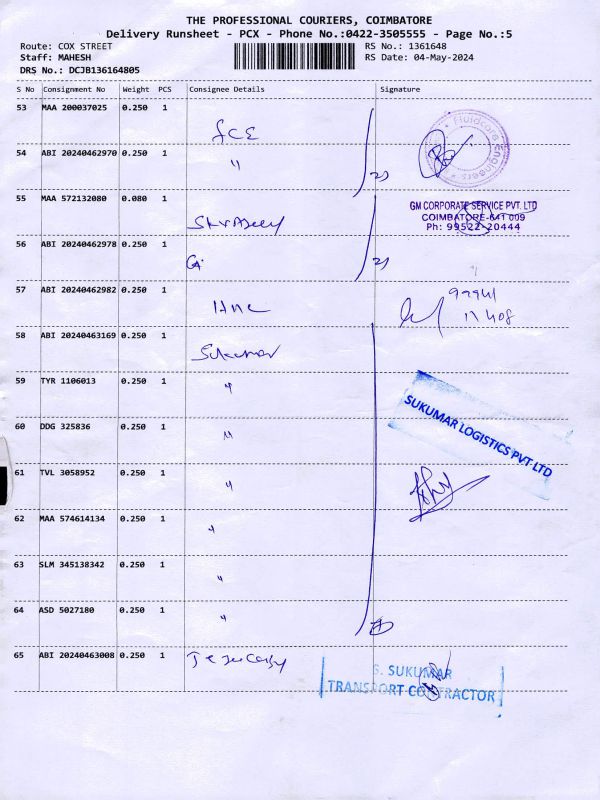 THE PROFESSIONAL COURIERS, COIMBATORE
Delivery Runsheet - PCX - Phone No.:0422-3505555 - Page No.:5
Route: COX STREET
RS No.: 1361648
Staff: MAHESH
RS Date: 04-May-2024
DRS No.: DCJB136164805
S No Consignment No Weight PCS Consignee Details Signature
53 MAA 200037025 0.250 1
Fluidcore Engineers
54 ABI 20240462970 0.250 1 "
55 MAA 572132080 0.080 1
GM CORPORATE SERVICE PVT. LTD
COIMBATORE-641 009
Ph: 99522-20444
56 ABI 20240462978 0.250 1
57 ABI 20240462982 0.250 1
58 ABI 20240463169 0.250 1 Sukumar
59 TYR 1106013 0.250 1 "
SUKUMAR LOGISTICS PVT LTD
60 DDG 325836 0.250 1 "
61 TVL 3058952 0.250 1 "
62 MAA 574614134 0.250 1 "
63 SLM 345138342 0.250 1 "
64 ASD 5027180 0.250 1 "
65 ABI 20240463008 0.250 1
S. SUKUMAR
TRANSPORT CONTRACTOR